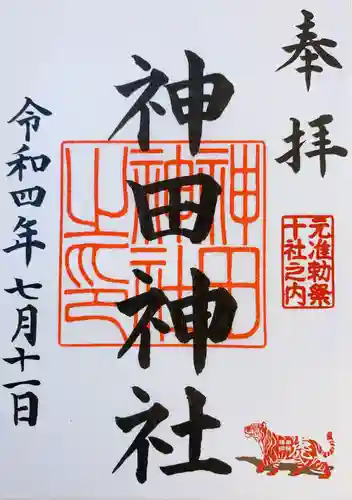 奉拝
元准勅祭
十社之内
神田神社
神田
神社
之印
令和四年七月十一日